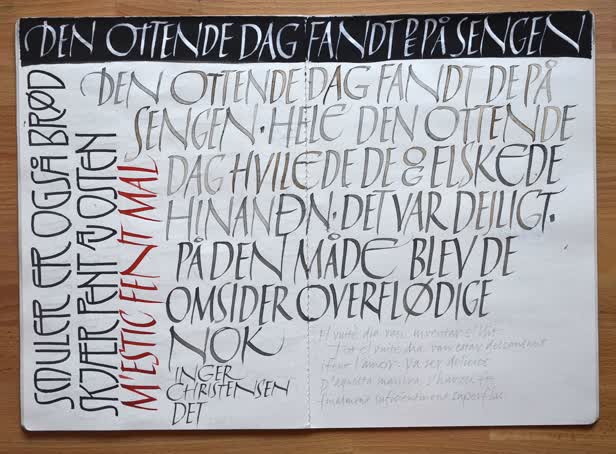 DEN OTTENDE DAG FANDT DE PÅ SENGEN
DEN OTTENDE DAG FANDT DE PÅ
SENGEN · HELE DEN OTTENDE
DAG HVILEDE DE OG ELSKEDE
HINANÐN · DET VAR DEJLIGT ·
PÅ DEN MÅDE BLEV DE
OMSIDER OVERFLØDIGE
NOK
INGER
CHRISTENSEN
DET
SMULER ER OGSÅ BRØD
SKJÆR PENT AV OSTEN
M'ESTIC FENT MAL
El vuitè dia van inventar el llit
Tot el vuitè dia van estar descansant
i fent l'amor. Va ser deliciós
D'aquesta manera, s'havien
finalment suficientment superflus